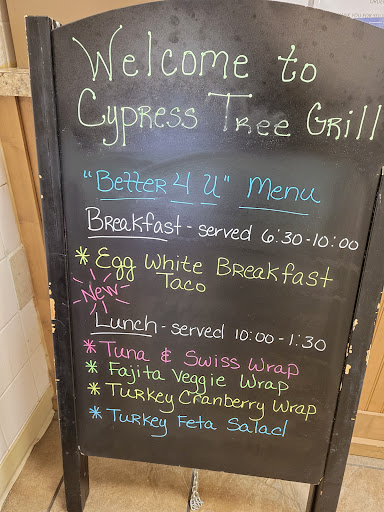 Welcome to
Cypress Tree Grill
"Better 4 U" Menu
Breakfast - served 6:30-10:00
* Egg White Breakfast
Taco
New
Lunch - served 10:00-1:30
* Tuna & Swiss Wrap
* Fajita Veggie Wrap
* Turkey Cranberry Wrap
* Turkey Feta Salad